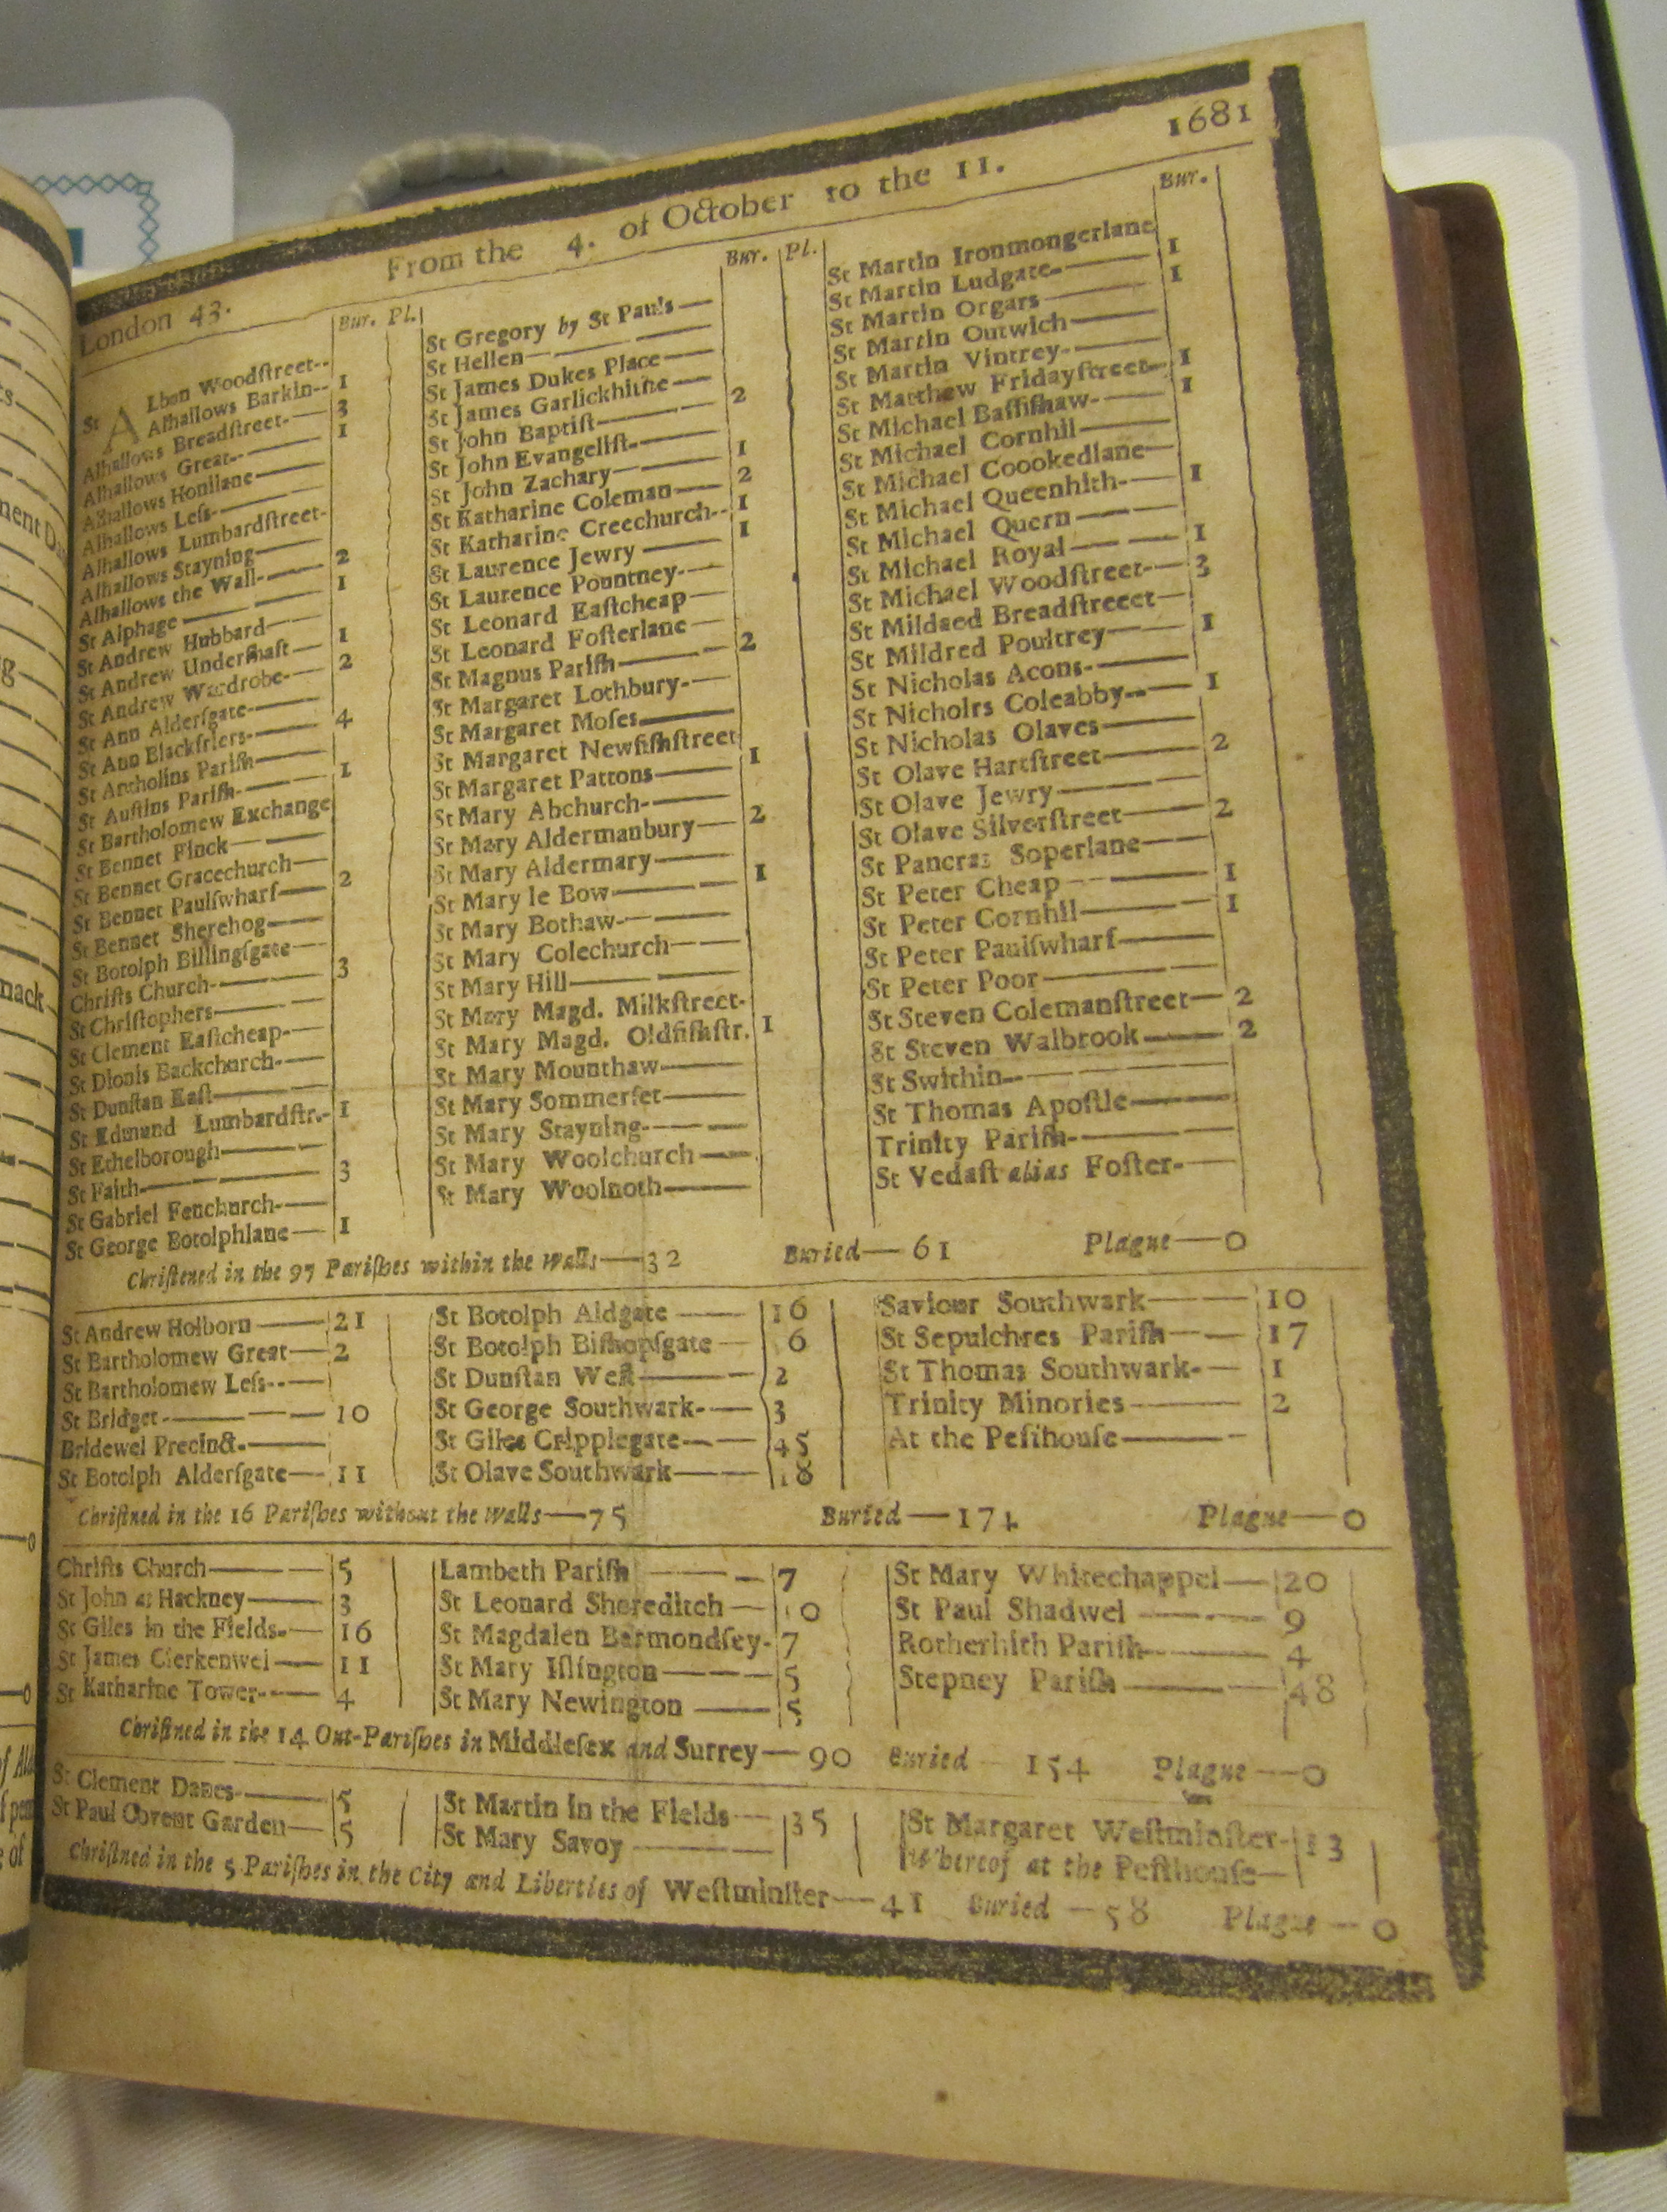 1681
From the 4. of October to the 11.
London 43.
Bur. Pl.
St ALban Woodſtreet--
Alhallows Barkin-- 1
Alhallows Breadſtreet-— 3
Alhallows Great-— 1
Alhallows Honilane—
Alhallows Leſs-—
Alhallows Lumbardſtreet-
Alhallows Stayning—
Alhallows the Wall-— 2
St Alphage— 1
St Andrew Hubbard—
St Andrew Underſhaft— 1
St Andrew Wardrobe-— 2
St Ann Alderſgate-—
St Ann Blackfriers-— 4
St Antholins Pariſh—
St Auſtins Pariſh-— 1
St Bartholomew Exchange
St Bennet Finck—
St Bennet Gracechurch—
St Bennet Paulſwharf— 2
St Bennet Sherehog—
St Botolph Billingſgate—
Chriſts Church-— 3
St Chriſtophers—
St Clement Eaſtcheap-—
St Dionis Backchurch-—
St Dunſtan Eaſt—
St Edmund Lumbardſtr.- 1
St Ethelborough—
St Faith— 3
St Gabriel Fenchurch-—
St George Botolphlane— 1
Bur. Pl.
St Gregory by St Paul's—
St Hellen—
St James Dukes Place—
St James Garlickhithe—
St John Baptiſt— 2
St John Evangeliſt-—
St John Zachary— 1
St Katharine Coleman— 2
St Katharine Creechurch-- 1
St Laurence Jewry— 1
St Laurence Pountney-—
St Leonard Eaſtcheap—
St Leonard Foſterlane—
St Magnus Pariſh— 2
St Margaret Lothbury-—
St Margaret Moſes—
St Margaret Newfiſhſtreet
St Margaret Pattons— 1
St Mary Abchurch-—
St Mary Aldermanbury— 2
St Mary Aldermary—
St Mary le Bow— 1
St Mary Bothaw-—
St Mary Colechurch—
St Mary Hill—
St Mary Magd. Milkſtreet-
St Mary Magd. Oldfiſhſtr. 1
St Mary Mounthaw—
St Mary Sommerſet—
St Mary Stayning-—
St Mary Woolchurch—
St Mary Woolnoth—
Bur.
St Martin Ironmongerlane
St Martin Ludgate-— 1
St Martin Orgars— 1
St Martin Outwich—
St Martin Vintrey-—
St Matthew Fridayſtreet— 1
St Michael Baſſiſhaw-— 1
St Michael Cornhil—
St Michael Coookedlane—
St Michael Queenhith-— 1
St Michael Quern—
St Michael Royal— 1
St Michael Woodſtreet-— 3
St Mildaed Breadſtreeet—
St Mildred Poultrey— 1
St Nicholas Acons-—
St Nicholrs Coleabby-— 1
St Nicholas Olaves—
St Olave Hartſtreet— 2
St Olave Jewry—
St Olave Silverſtreet— 2
St Pancras Soperlane—
St Peter Cheap— 1
St Peter Cornhil— 1
St Peter Paulſwharf—
St Peter Poor—
St Steven Colemanſtreet— 2
St Steven Walbrook— 2
St Swithin-—
St Thomas Apoſtle—
Trinity Pariſh-—
St Vedaſt alias Foſter-—
Chriſtened in the 97 Pariſhes within the Walls—32 Buried—61 Plague—0
St Andrew Holborn— 21
St Bartholomew Great— 2
St Bartholomew Leſs-—
St Bridget-— 10
Bridewel Precinct.—
St Botolph Alderſgate— 11
St Botolph Aldgate— 16
St Botolph Biſhopſgate— 6
St Dunſtan Weſt— 2
St George Southwark-— 3
St Giles Cripplegate— 45
St Olave Southwark— 18
Saviour Southwark— 10
St Sepulchres Pariſh— 17
St Thomas Southwark-— 1
Trinity Minories— 2
At the Peſthouſe—
Chriſtned in the 16 Pariſhes without the Walls—75 Buried—174 Plague—0
Chriſts Church— 5
St John at Hackney— 3
St Giles in the Fields-— 16
St James Clerkenwel— 11
St Katharine Tower-— 4
Lambeth Pariſh— 7
St Leonard Shoreditch— 10
St Magdalen Bermondſey- 7
St Mary Iſlington— 5
St Mary Newington— 5
St Mary Whitechappel— 20
St Paul Shadwel— 9
Rotherhith Pariſh— 4
Stepney Pariſh— 48
Chriſtned in the 14 Out-Pariſhes in Middleſex and Surrey—90 Buried—154 Plague—0
St Clement Danes-— 5
St Paul Covent Garden— 5
St Martin in the Fields— 35
St Mary Savoy—
St Margaret Weſtminſter- 13
Whereof at the Peſthouſe—
Chriſtned in the 5 Pariſhes in the City and Liberties of Weſtminſter—41 Buried—58 Plague—0